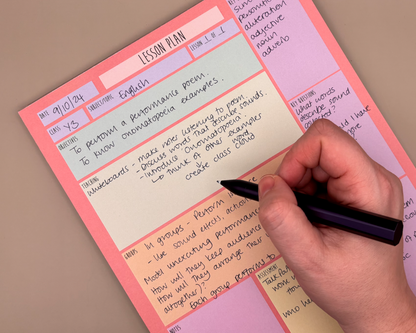 LESSON PLAN
DATE
9/10/24
SUBJECT(S)
English
LESSON 1 OF 1
CLASS
Y3
OBJECTIVES
To perform a performance poem.
To know onomatopoeia examples.
TEACHING
Whiteboards - make notes listening to poem.
- Discuss words that describe sounds.
- Introduce 'Onomatopoeia'.
↳ Think of other examples
↳ create class word cloud
In groups - Perform
- Use sound effects, action
Model unexecuting performance
How will they keep audience
How will they arrange their
altogether)?
Each group performs to
NOTES
simile
personification
alliteration
adjective
noun
adverb
KEY QUESTIONS
What words
describe sound
Talk Par
more
who near